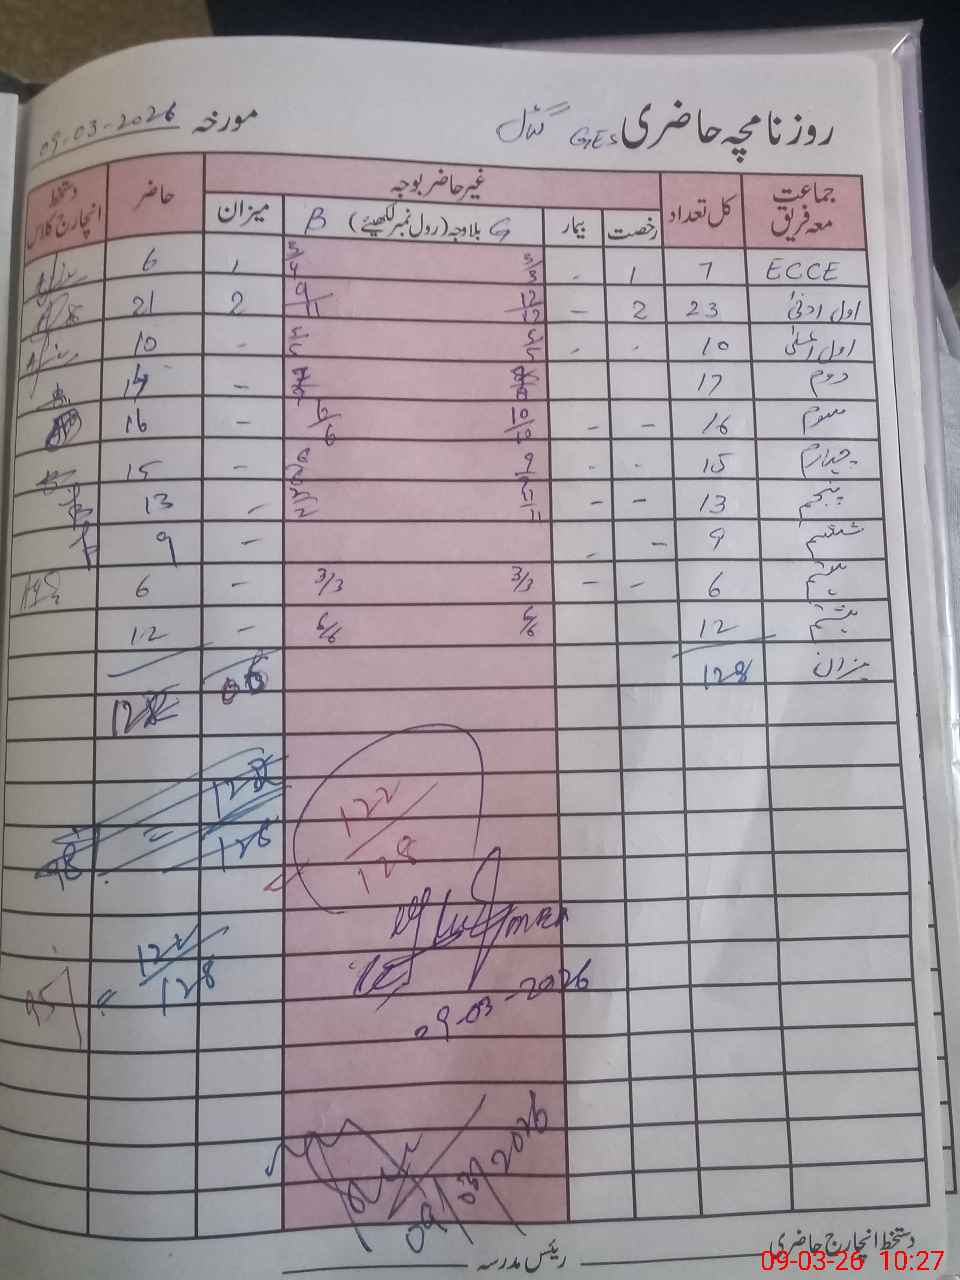 روزنامچہ حاضری GES گٹال مورخہ 09-03-2026
جماعت معہ فریق کل تعداد غیر حاضر بوجہ حاضر دستخط انچارج کلاس
رخصت بیمار G بلاوجہ (رول نمبر لکھیئے) B میزان
ECCE 7 1 - 3/3 3/4 1 6
اول ادنیٰ 23 2 - 12/12 9/11 2 21
اول اعلیٰ 10 - - 5/5 5/5 - 10
دوم 17 - 14
سوم 16 - - 10/10 6/6 - 16
چہارم 15 - - - 15
پنجم 13 - - 11/11 2/2 - 13
ششم 9 - - - 9
ہفتم 6 - - 3/3 3/3 - 6
ہشتم 12 6/6 6/6 - 12
میزان 128 06
128
122/128
122/128 = 95%
09-03-2026
09/03/2026
دستخط انچارج حاضری رئیس مدرسہ
09-03-26 10:27